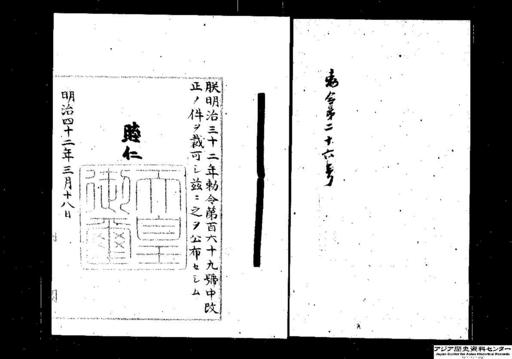 勅令第二十六号
朕明治三十二年勅令第百六十九號中改
正ノ件ヲ裁可シ茲ニ之ヲ公布セシム
睦仁
天皇御璽
明治四十二年三月十八日
アジア歴史資料センター
Japan Center for Asian Historical Records